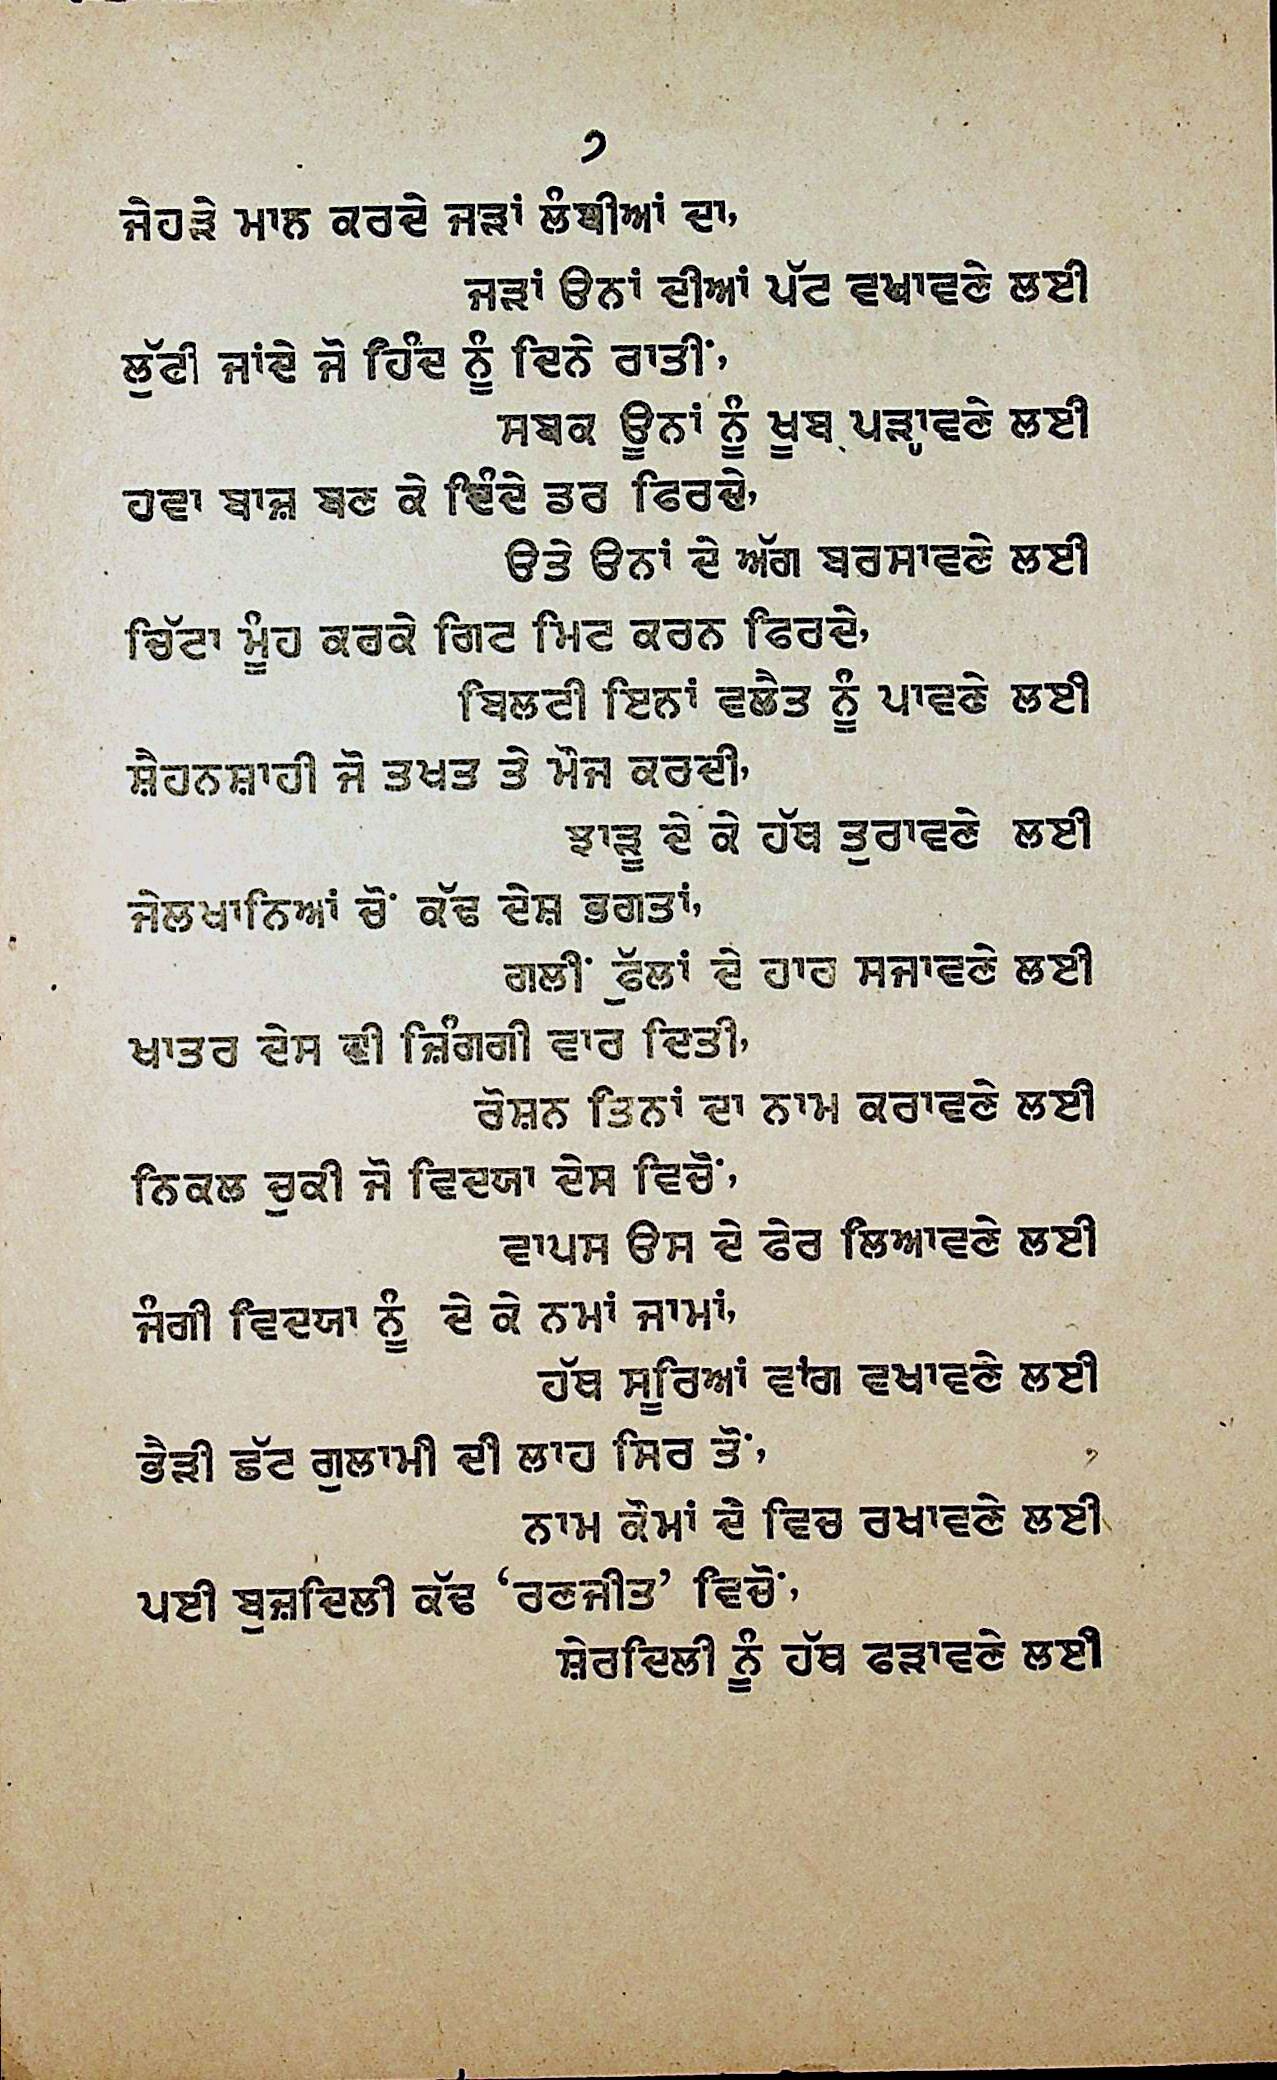 ੭
ਜੇਹੜੇ ਮਾਲ ਕਰਦੇ ਜੜਾਂ ਲੰਬੀਆਂ ਦਾ,
ਜੜਾਂ ਓਨਾਂ ਦੀਆਂ ਪੱਟ ਵਖਾਵਣੇ ਲਈ
ਲੁੱਟੀ ਜਾਂਦੇ ਜੋ ਹਿੰਦ ਨੂੰ ਦਿਨੇ ਰਾਤੀਂ,
ਸਬਕ ਊਨਾਂ ਨੂੰ ਖੂਬ ਪੜ੍ਹਾਵਣੇ ਲਈ
ਹਵਾ ਬਾਜ਼ ਬਣ ਕੇ ਦਿੰਦੇ ਡਰ ਫਿਰਦੇ,
ਓਤੇ ਓਨਾਂ ਦੇ ਅੱਗ ਬਰਸਾਵਣੇ ਲਈ
ਚਿੱਟਾ ਮੂੰਹ ਕਰਕੇ ਗਿਟ ਮਿਟ ਕਰਨ ਫਿਰਦੇ,
ਬਿਲਟੀ ਇਨਾਂ ਵਲੈਤ ਨੂੰ ਪਾਵਣੇ ਲਈ
ਸ਼ੈਹਨਸ਼ਾਹੀ ਜੋ ਤਖਤ ਤੇ ਮੌਜ ਕਰਦੀ,
ਝਾੜੂ ਦੇ ਕੇ ਹੱਥ ਤੁਰਾਵਣੇ ਲਈ
ਜੇਲਖਾਨਿਆਂ ਚੋਂ ਕੱਢ ਦੇਸ਼ ਭਗਤਾਂ,
ਗਲੀਂ ਫੁੱਲਾਂ ਦੇ ਹਾਰ ਸਜਾਵਣੇ ਲਈ
ਖਾਤਰ ਦੇਸ ਦੀ ਜ਼ਿੰਗਗੀ ਵਾਰ ਦਿਤੀ,
ਰੋਸ਼ਨ ਤਿਨਾਂ ਦਾ ਨਾਮ ਕਰਾਵਣੇ ਲਈ
ਨਿਕਲ ਚੁਕੀ ਜੋ ਵਿਦਯਾ ਦੇਸ ਵਿਚੋਂ,
ਵਾਪਸ ਓਸ ਦੇ ਫੇਰ ਲਿਆਵਣੇ ਲਈ
ਜੰਗੀ ਵਿਦਯਾ ਨੂੰ ਦੇ ਕੇ ਨਮਾਂ ਜਾਮਾਂ,
ਹੱਥ ਸੂਰਿਆਂ ਵਾਂਗ ਵਖਾਵਣੇ ਲਈ
ਭੈੜੀ ਛੱਟ ਗੁਲਾਮੀ ਦੀ ਲਾਹ ਸਿਰ ਤੋਂ,
ਨਾਮ ਕੌਮਾਂ ਦੇ ਵਿਚ ਰਖਾਵਣੇ ਲਈ
ਪਈ ਬੁਜ਼ਦਿਲੀ ਕੱਢ ‘ਰਣਜੀਤ’ ਵਿਚੋਂ,
ਸ਼ੇਰਦਿਲੀ ਨੂੰ ਹੱਥ ਫੜਾਵਣੇ ਲਈ